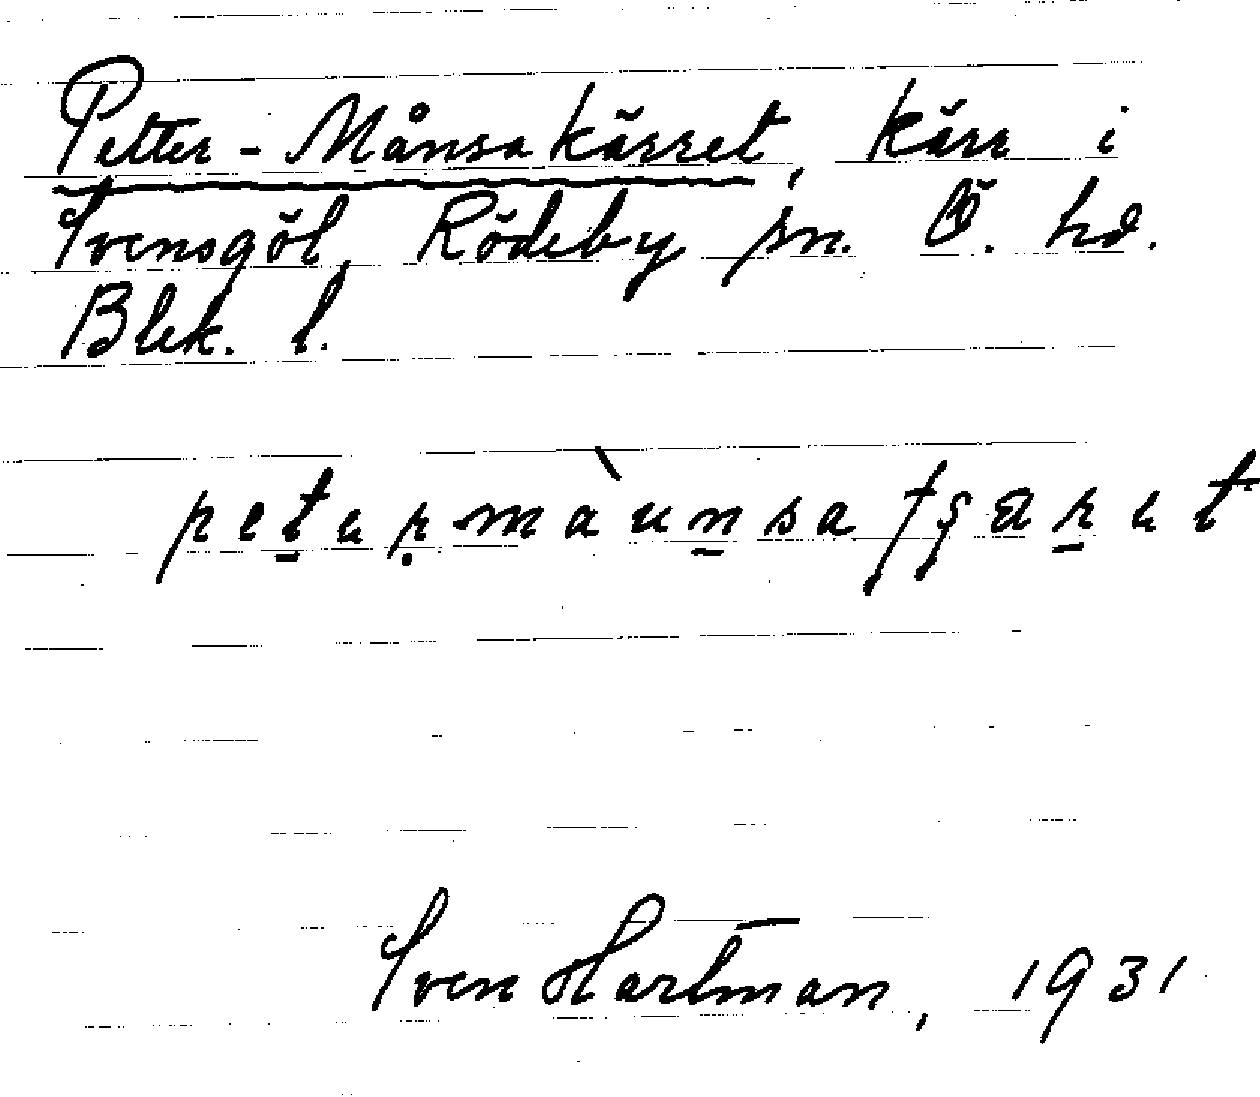 Petter-Månsakärret, kärr i
Svensgöl, Rödeby sn. Ö. hd.
Blek. l.
Sven Hartman, 1931